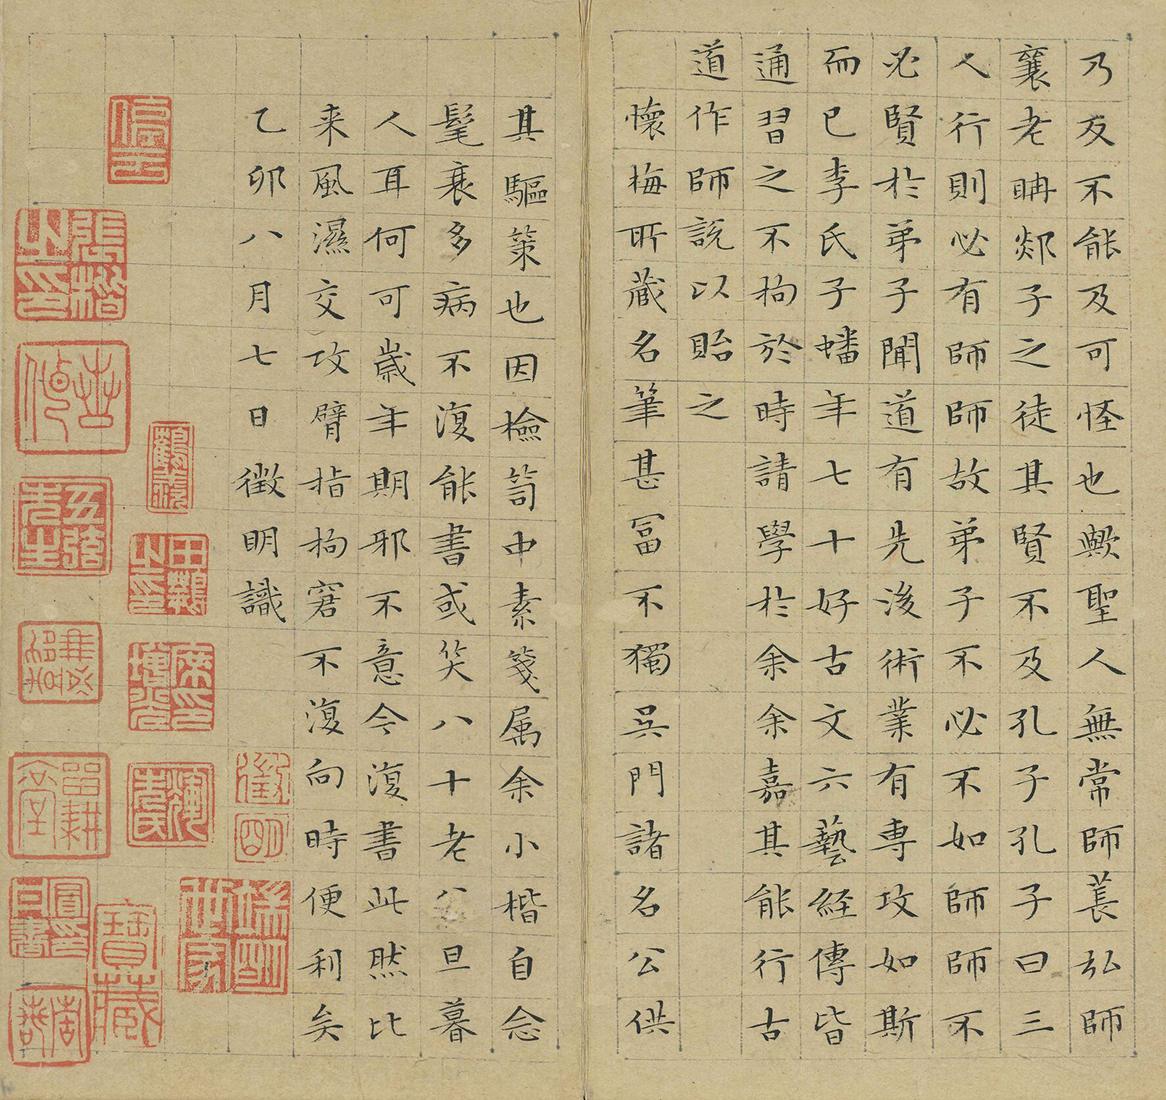 乃反不能及可怪也歟聖人無常師萇弘師
襄老聃郯子之徒其賢不及孔子孔子曰三
人行則必有師師故弟子不必不如師師不
必賢於弟子聞道有先後術業有專攻如斯
而已李氏子蟠年七十好古文六藝經傳皆
通習之不拘於時請學於余余嘉其能行古
道作師說以貽之
懷梅所藏名筆甚富不獨吳門諸名公供
其驅策也因檢笥中素箋属余小楷自念
髦衰多病不復能書或笑八十老公旦暮
人耳何可歲年期邪不意今復書此然比
来風濕交攻臂指拘窘不復向時便利矣
乙卯八月七日徵明識
停雲
張楷之印
五峯先生
徵明
寶藏